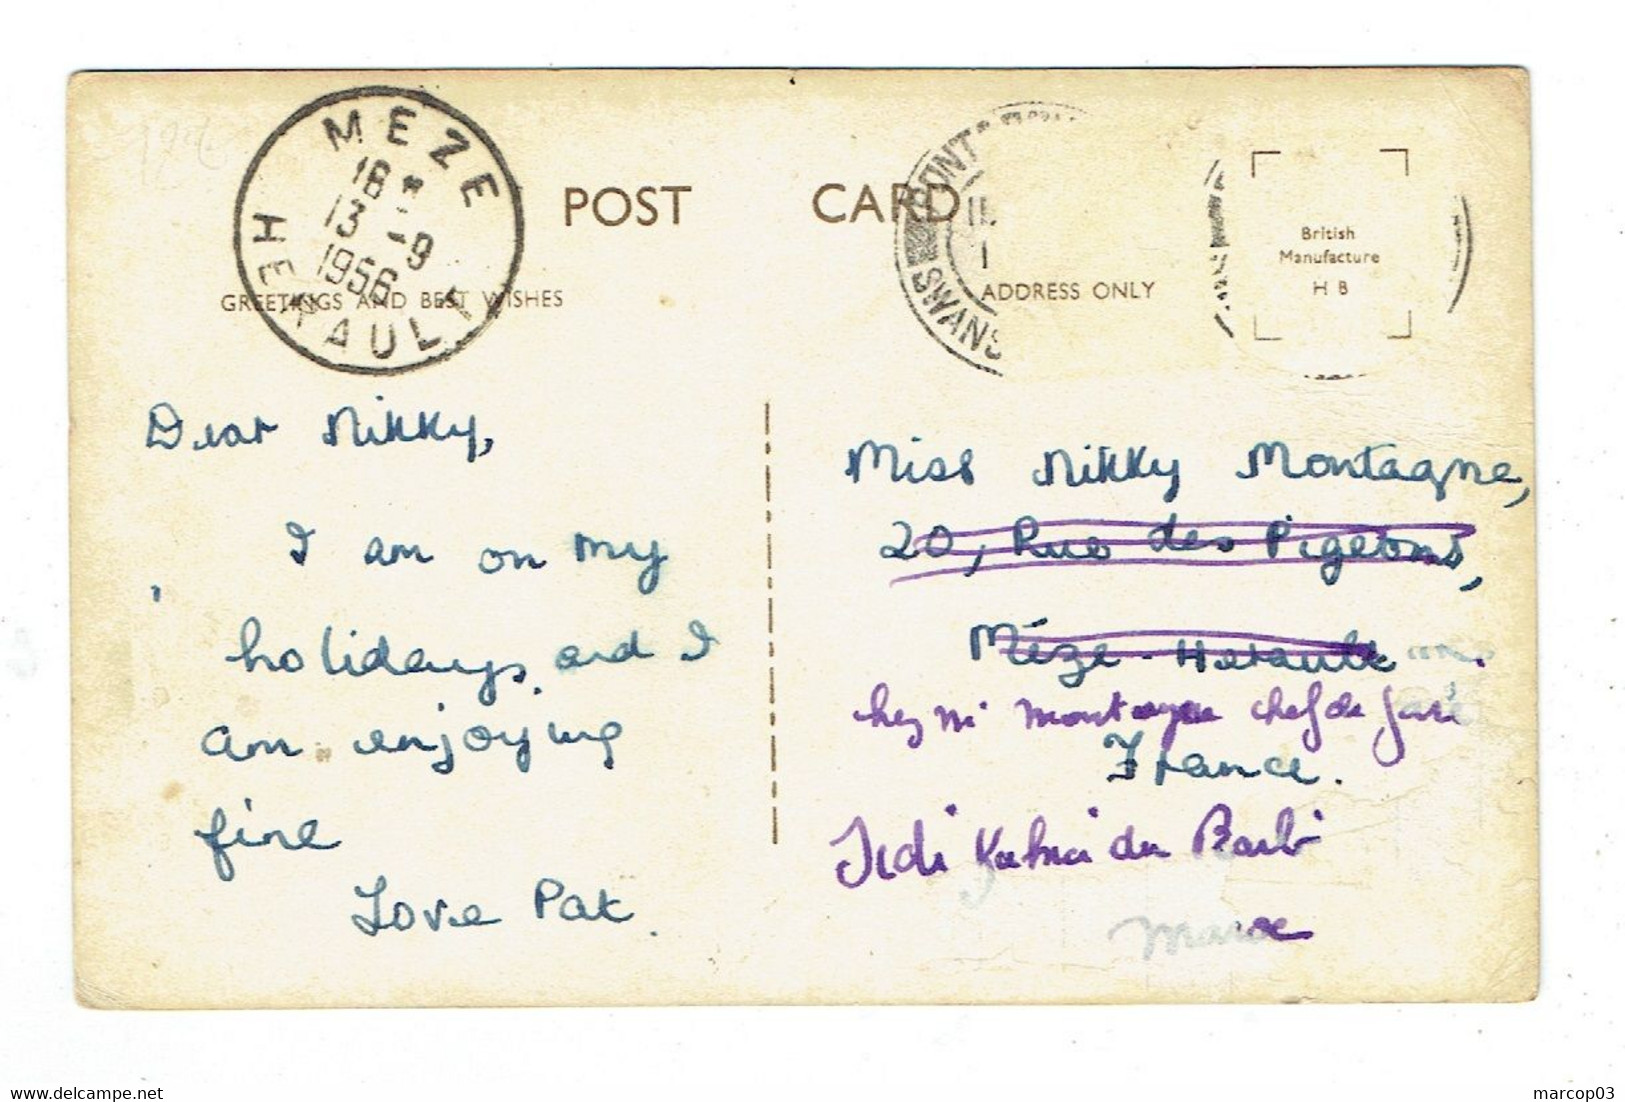 MEZE
18 *
13 -9
1956
HERAULT
POST CARD
GREETINGS AND BEST WISHES
PONT
SWANS
ADDRESS ONLY
British
Manufacture
H B
Dear Nikky,
I am on my
holidays and I
am enjoying
fine
Love Pat.
Miss Nikky Montagne,
20, Rue des Pigeons,
Méze - Herault
chez Mr Montagne chef de gare
France.
Sidi Yahia du Barb
Maroc
marcop03